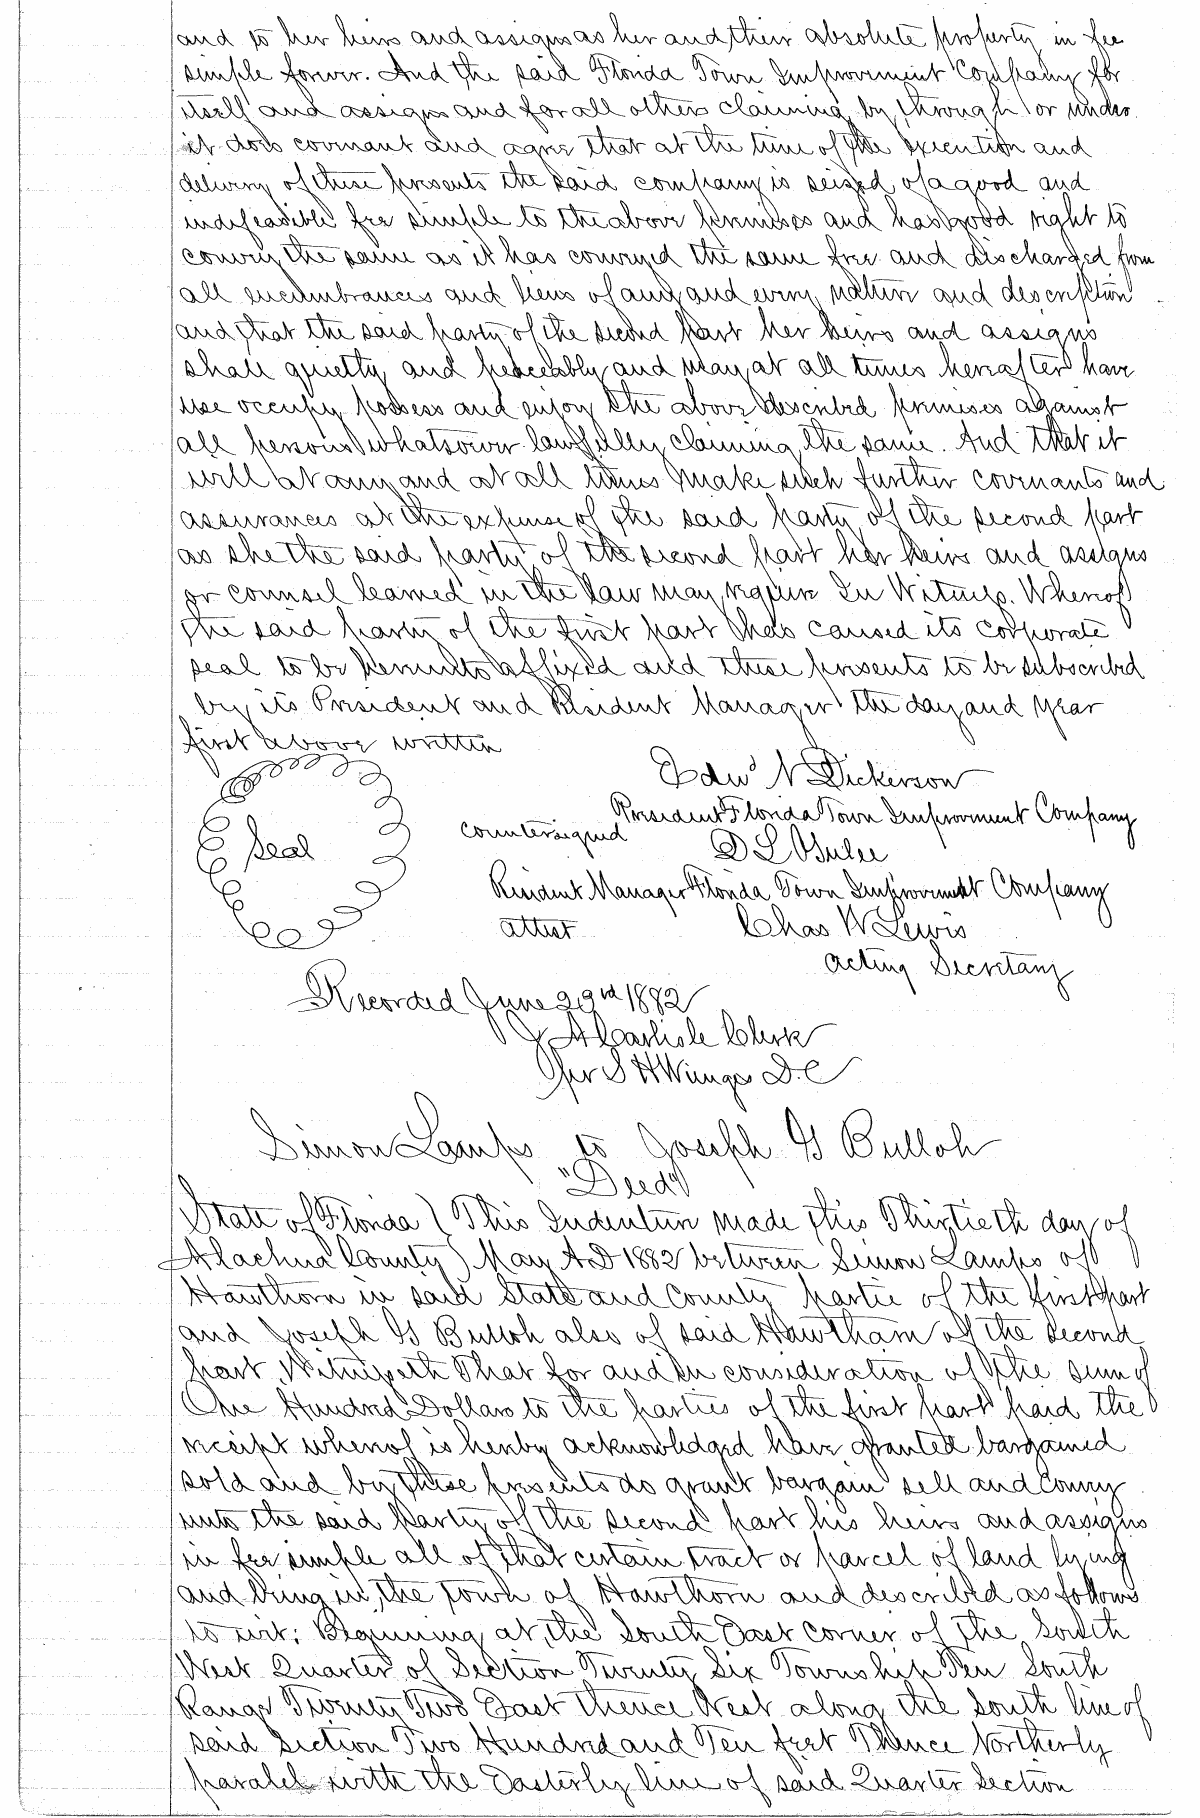 and to her heirs and assigns as her and their absolute property in fee
simple forever. And the said Florida Town Improvement Company for
itself and assigns and for all others claiming by through or under
it does covenant and agree that at the time of the execution and
delivery of these presents the said company is seized of a good and
indefeasible fee simple to the above premises and has good right to
convey the same as it has conveyed the same free and discharged from
all encumbrances and liens of any and every nature and description
and that the said party of the second part her heirs and assigns
shall quietly and peaceably and may at all times hereafter have
use occupy possess and enjoy the above described premises against
all persons whatsoever lawfully claiming the same. And that it
will at any and at all times make such further covenants and
assurances at the expense of the said party of the second part
as she the said party of the second part her heirs and assigns
or counsel learned in the law may require In Witness. Whereof
the said party of the first part has caused its corporate
seal to be hereunto affixed and these presents to be subscribed
by its President and Resident Manager the day and year
first above written
Edwd N Dickerson
President Florida Town Improvment Company
countersigned
Seal
D L Yulee
Resident Manager Florida Town Improvement Company
attest
Chas W Lewis
acting Secretary
Recorded June 29rd 1882
J A Carlisle Clerk
Per S H Wienges D.C
Simon Lamps to Joseph G Bulloh
"Deed"
State of Florida ( This Indenture made this Thirtieth day of
Alachua County ) May A.D 1882 between Simon Lamps of
Hawthorn in said State and County partie of the first part
and Joseph G Bulloh also of said Hawtharn of the second
part, Witnesseth That for and in consideration of the sum of
One Hundred Dollars to the parties of the first part paid the
receipt whereof is hereby acknowledged have granted bargained
sold and by these presents do grant bargain sell and convey
unto the said party of the second part his heirs and assigns
in fee simple all of that certain tract or parcel of land lying
and being in, the town of Hawthorn and described as follows
to wit: Beginning at, the South East corner of the South
West Quarter of Section Twenty Six Township Ten South
Range Twenty Two East thence West along the south line of
said section Two Hundred and Ten feet Thence Northerly
paralel with the Easterly line of said Quarter Section